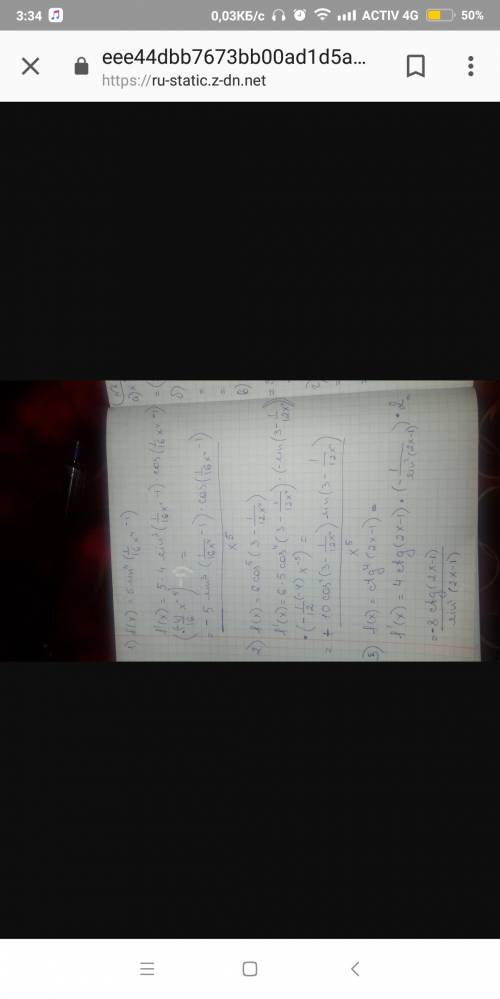 3:34
0,03КБ/с
ACTIV 4G
50%
eee44dbb7673bb00ad1d5a...
https://ru-static.z-dn.net
1) f(x) = 5 sin⁴(1/16x⁴ - 1)
f'(x) = 5·4 sin³(1/16x⁴ - 1)·cos(1/16x⁴ - 1)
=
= - 5 sin³(1/16x⁴ - 1)·cos(1/16x⁴ - 1)
x⁵
2) f(x) = 6 cos⁵(3 - 1/12x⁴)
f'(x) = 6·5 cos⁴(3 - 1/12x⁴)·(-sin(3 - 1/12x⁴))
·(-1/12 (-4) x⁻⁵) =
= 10 cos⁴(3 - 1/12x⁴) sin(3 - 1/12x⁴)
x⁵
3) f(x) = ctg⁴(2x-1) =
f'(x) = 4 ctg(2x-1)·(-1/sin²(2x-1))·2 =
= -8 ctg(2x-1)
sin²(2x-1)